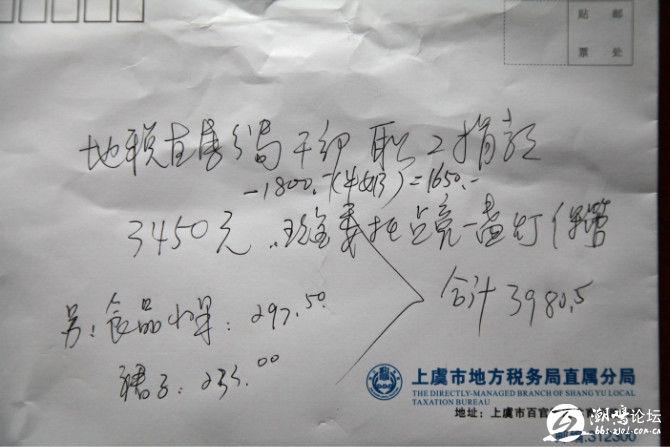 贴 邮
票 处
地税直属分局干部职工捐款
-1800.- =1650.-
3450元.现金委托点亮一盏灯保管
另:食品水果:297.50
裙子:233.00
合计3980.5
上虞市地方税务局直属分局
THE DIRECTLY-MANAGED BRANCH OF SHANG YU LOCAL
TAXATION BUREAU
地址:上虞市百官
邮编:312300
潮鸣论坛
bbs.zjol.com.cn